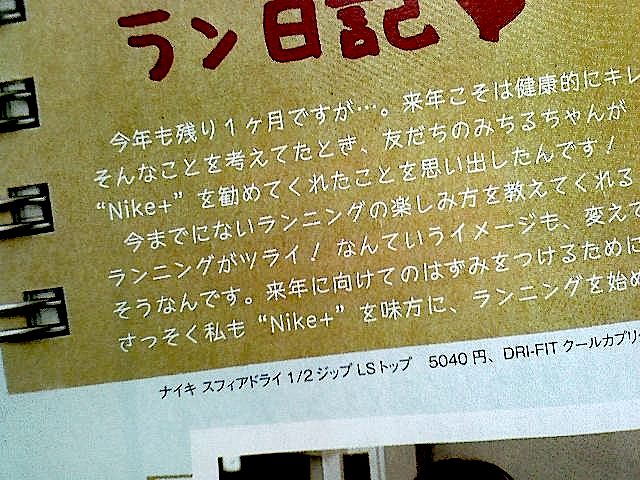 ラン日記
今年も残り1ヶ月ですが…。来年こそは健康的にキレ
そんなことを考えてたとき、友だちのみちるちゃんが
“Nike+” を勧めてくれたことを思い出したんです！
今までにないランニングの楽しみ方を教えてくれる
ランニングがツライ！なんていうイメージも、変えて
そうなんです。来年に向けてのはずみをつけるために
さっそく私も “Nike+” を味方に、ランニングを始め
ナイキ スフィアドライ 1/2ジップ LSトップ 5040円、DRI-FIT クールカプリ